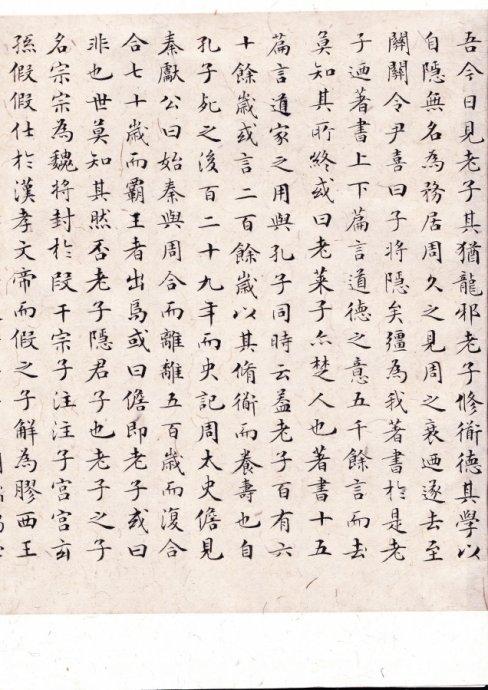 吾今日見老子其猶龍邪老子修衜德其學以
自隱無名為務居周久之見周之衰迺遂去至
關關令尹喜曰子將隱矣彊為我著書於是老
子迺著書上下篇言道德之意五千餘言而去
莫知其所終或曰老萊子亦楚人也著書十五
篇言道家之用與孔子同時云蓋老子百有六
十餘歲或言二百餘歲以其脩衜而養壽也自
孔子死之後百二十九年而史記周太史儋見
秦獻公曰始秦與周合而離離五百歲而復合
合七十歲而霸王者出焉或曰儋即老子或曰
非也世莫知其然否老子隱君子也老子之子
名宗宗為魏將封於段干宗子注注子宮宮玄
孫假假仕於漢孝文帝而假之子解為膠西王